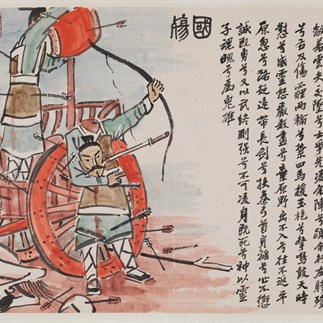 敵若雲矢交墜兮士爭先凌余陣兮躐余行左驂殪
兮右刃傷霾兩輪兮縶四馬援玉枹兮擊鳴鼓天時
懟兮威靈怒嚴殺盡兮棄原野出不入兮往不返平
原忽兮路超遠帶長劍兮挾秦弓首身離兮心不懲
誠既勇兮又以武終剛強兮不可凌身既死兮神以靈
子魂魄兮為鬼雄
國殤